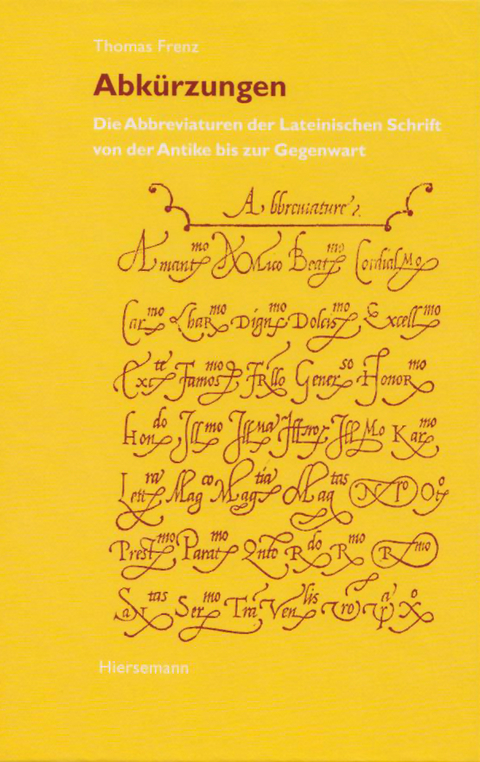 Thomas Frenz
Abkürzungen
Die Abbreviaturen der Lateinischen Schrift
von der Antike bis zur Gegenwart
Abbreviature
Amant mo Amico Beat mo Cordial Mo
Car mo Char mo Dign mo Dolcis mo Excell mo
Exc te Famos mo Frllo Gener so Honor mo
Hon do Ill mo Ill Mo Kar mo
Lett ra Mag co Mag tia Mag tas N ro Oto
Prest mo Parat mo Qnto R do R mo R mo
San tas Ser mo Tra Ven lis Vro
Hiersemann